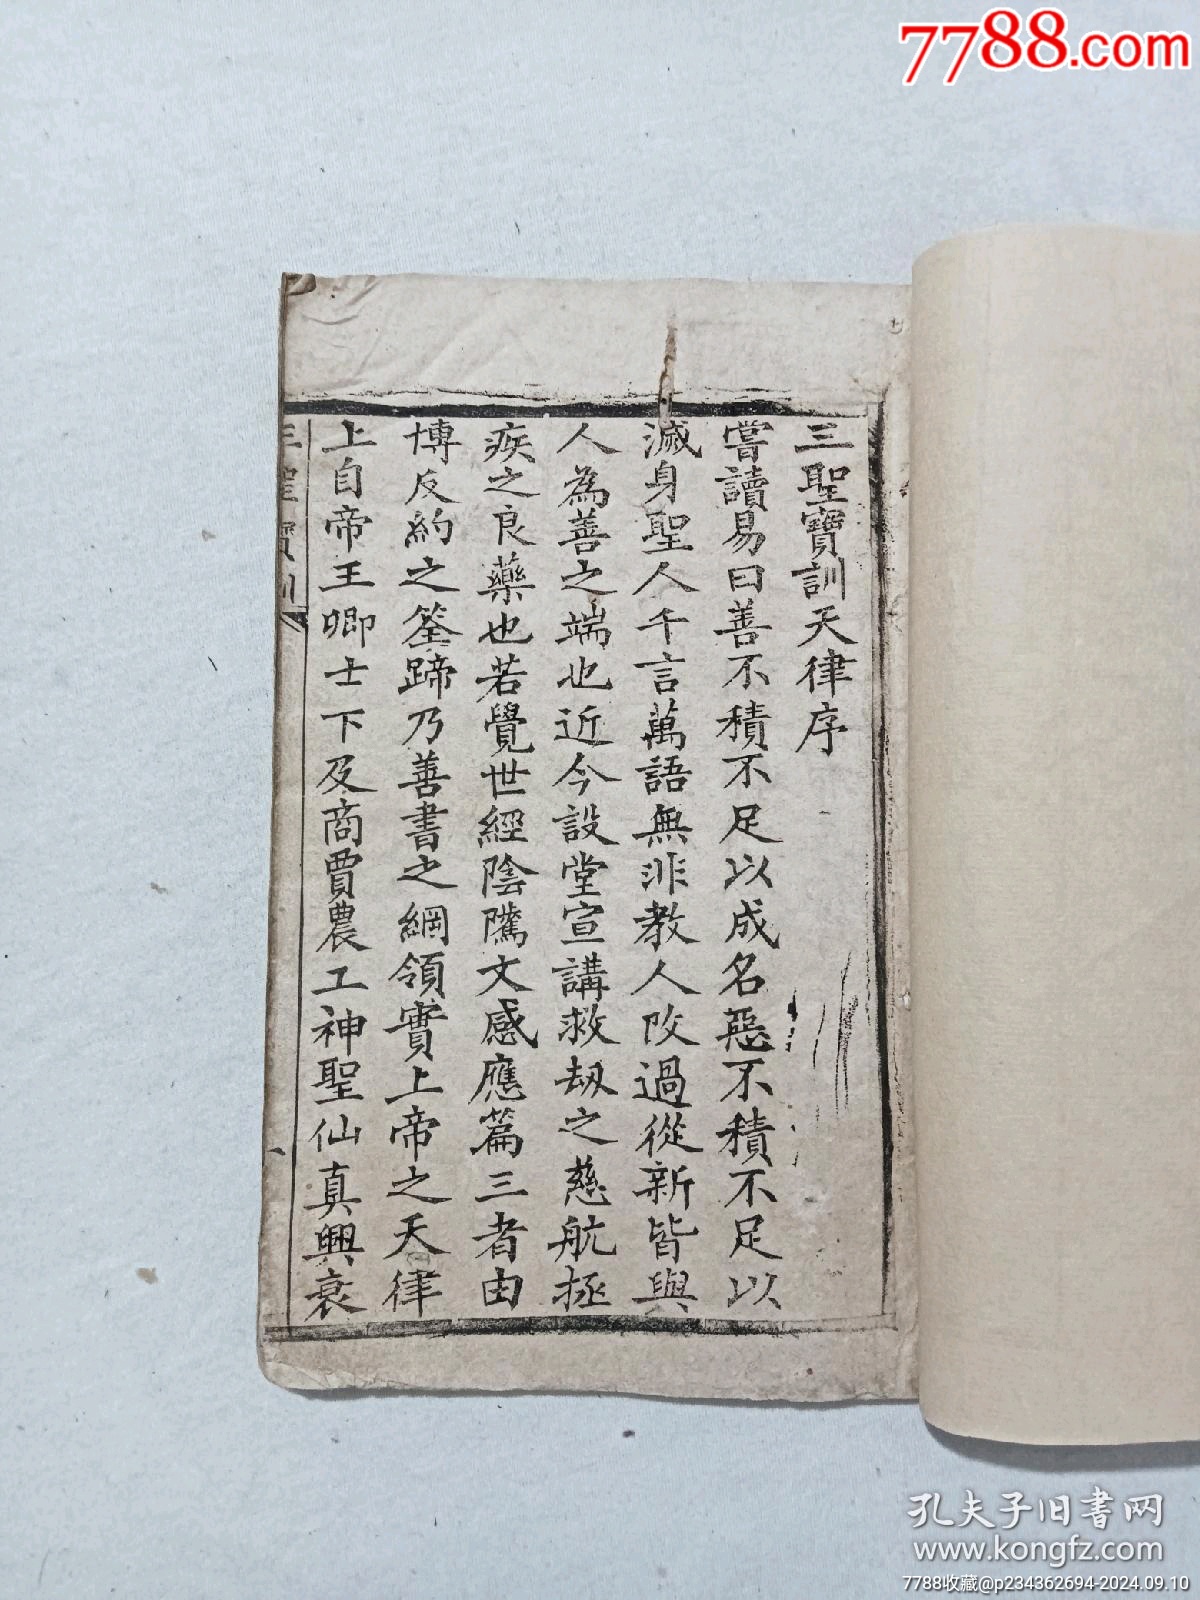 7788.com
三聖寶訓天律序
嘗讀易曰善不積不足以成名惡不積不足以
滅身聖人千言萬語無非教人改過從新皆與
人為善之端也近今設堂宣講救劫之慈航拯
疾之良藥也若覺世經陰隲文感應篇三者由
博反約之筌蹄乃善書之綱領實上帝之天律
上自帝王卿士下及商賈農工神聖仙真興衰
三聖寶訓
孔夫子旧书网
www.kongfz.com
7788收藏@p234362694-2024.09.10